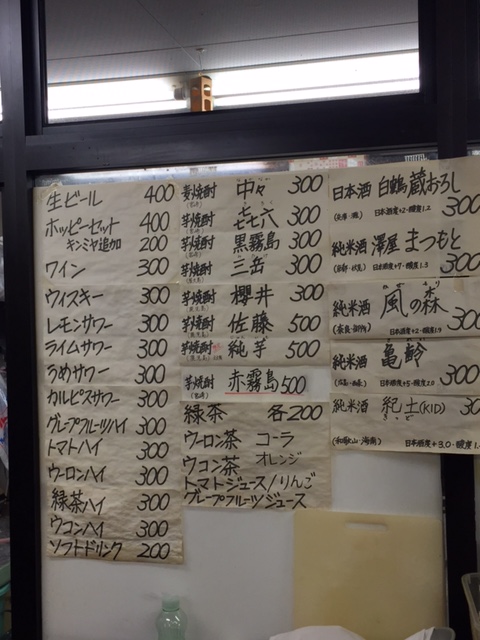 生ビール 400
ホッピーセット 400
キンミヤ追加 200
ワイン 300
ウィスキー 300
レモンサワー 300
ライムサワー 300
うめサワー 300
カルピスサワー 300
グレープフルーツハイ 300
トマトハイ 300
ウーロンハイ 300
緑茶ハイ 300
ウコンハイ 300
ソフトドリンク 200
麦焼酎 中々 300
(宮崎)
芋焼酎 㐂七六 300
芋焼酎 黒霧島 300
(宮崎)
芋焼酎 三岳 300
芋焼酎 櫻井 300
芋焼酎 佐藤 500
芋焼酎 純芋 500
芋焼酎 赤霧島 500
(宮崎)
緑茶 各200
ウーロン茶 コーラ
ウコン茶 オレンジ
トマトジュース/りんご
グレープフルーツジュース
日本酒 白鶴 蔵おろし
(兵庫・灘) 日本酒度+2・酸度1.2 300
純米酒 澤屋 まつもと
(京都・伏見) 日本酒度+7・酸度1.5 300
純米酒 風の森
(奈良・御所) 日本酒度+2・酸度1.9 300
純米酒 亀齢
日本酒度+5・酸度2.0 300
純米酒 紀土(KID) 30
きっど
(和歌山・海南) 日本酒度+3.0・酸度1.